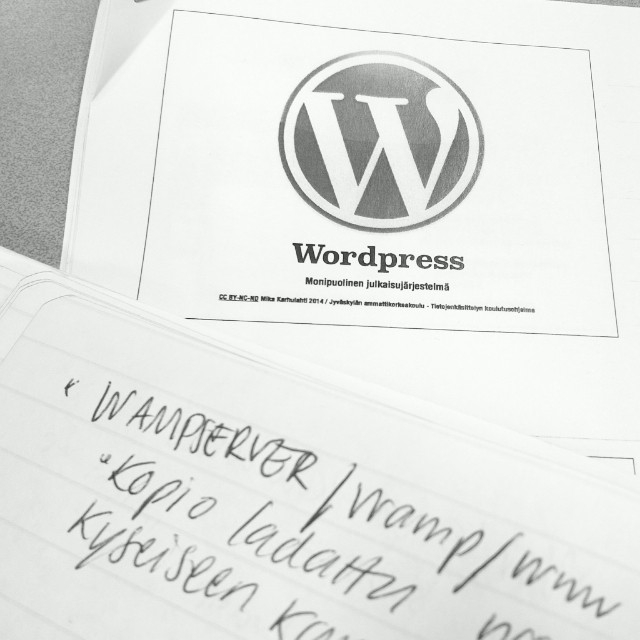 W
Wordpress
Monipuolinen julkaisujärjestelmä
CC BY-NC-ND Mika Karhulahti 2014 / Jyväskylän ammattikorkeakoulu - Tietojenkäsittelyn koulutusohjelma
WAMPSERVER/wamp/www
Kopio ladattu
Kyseiseen